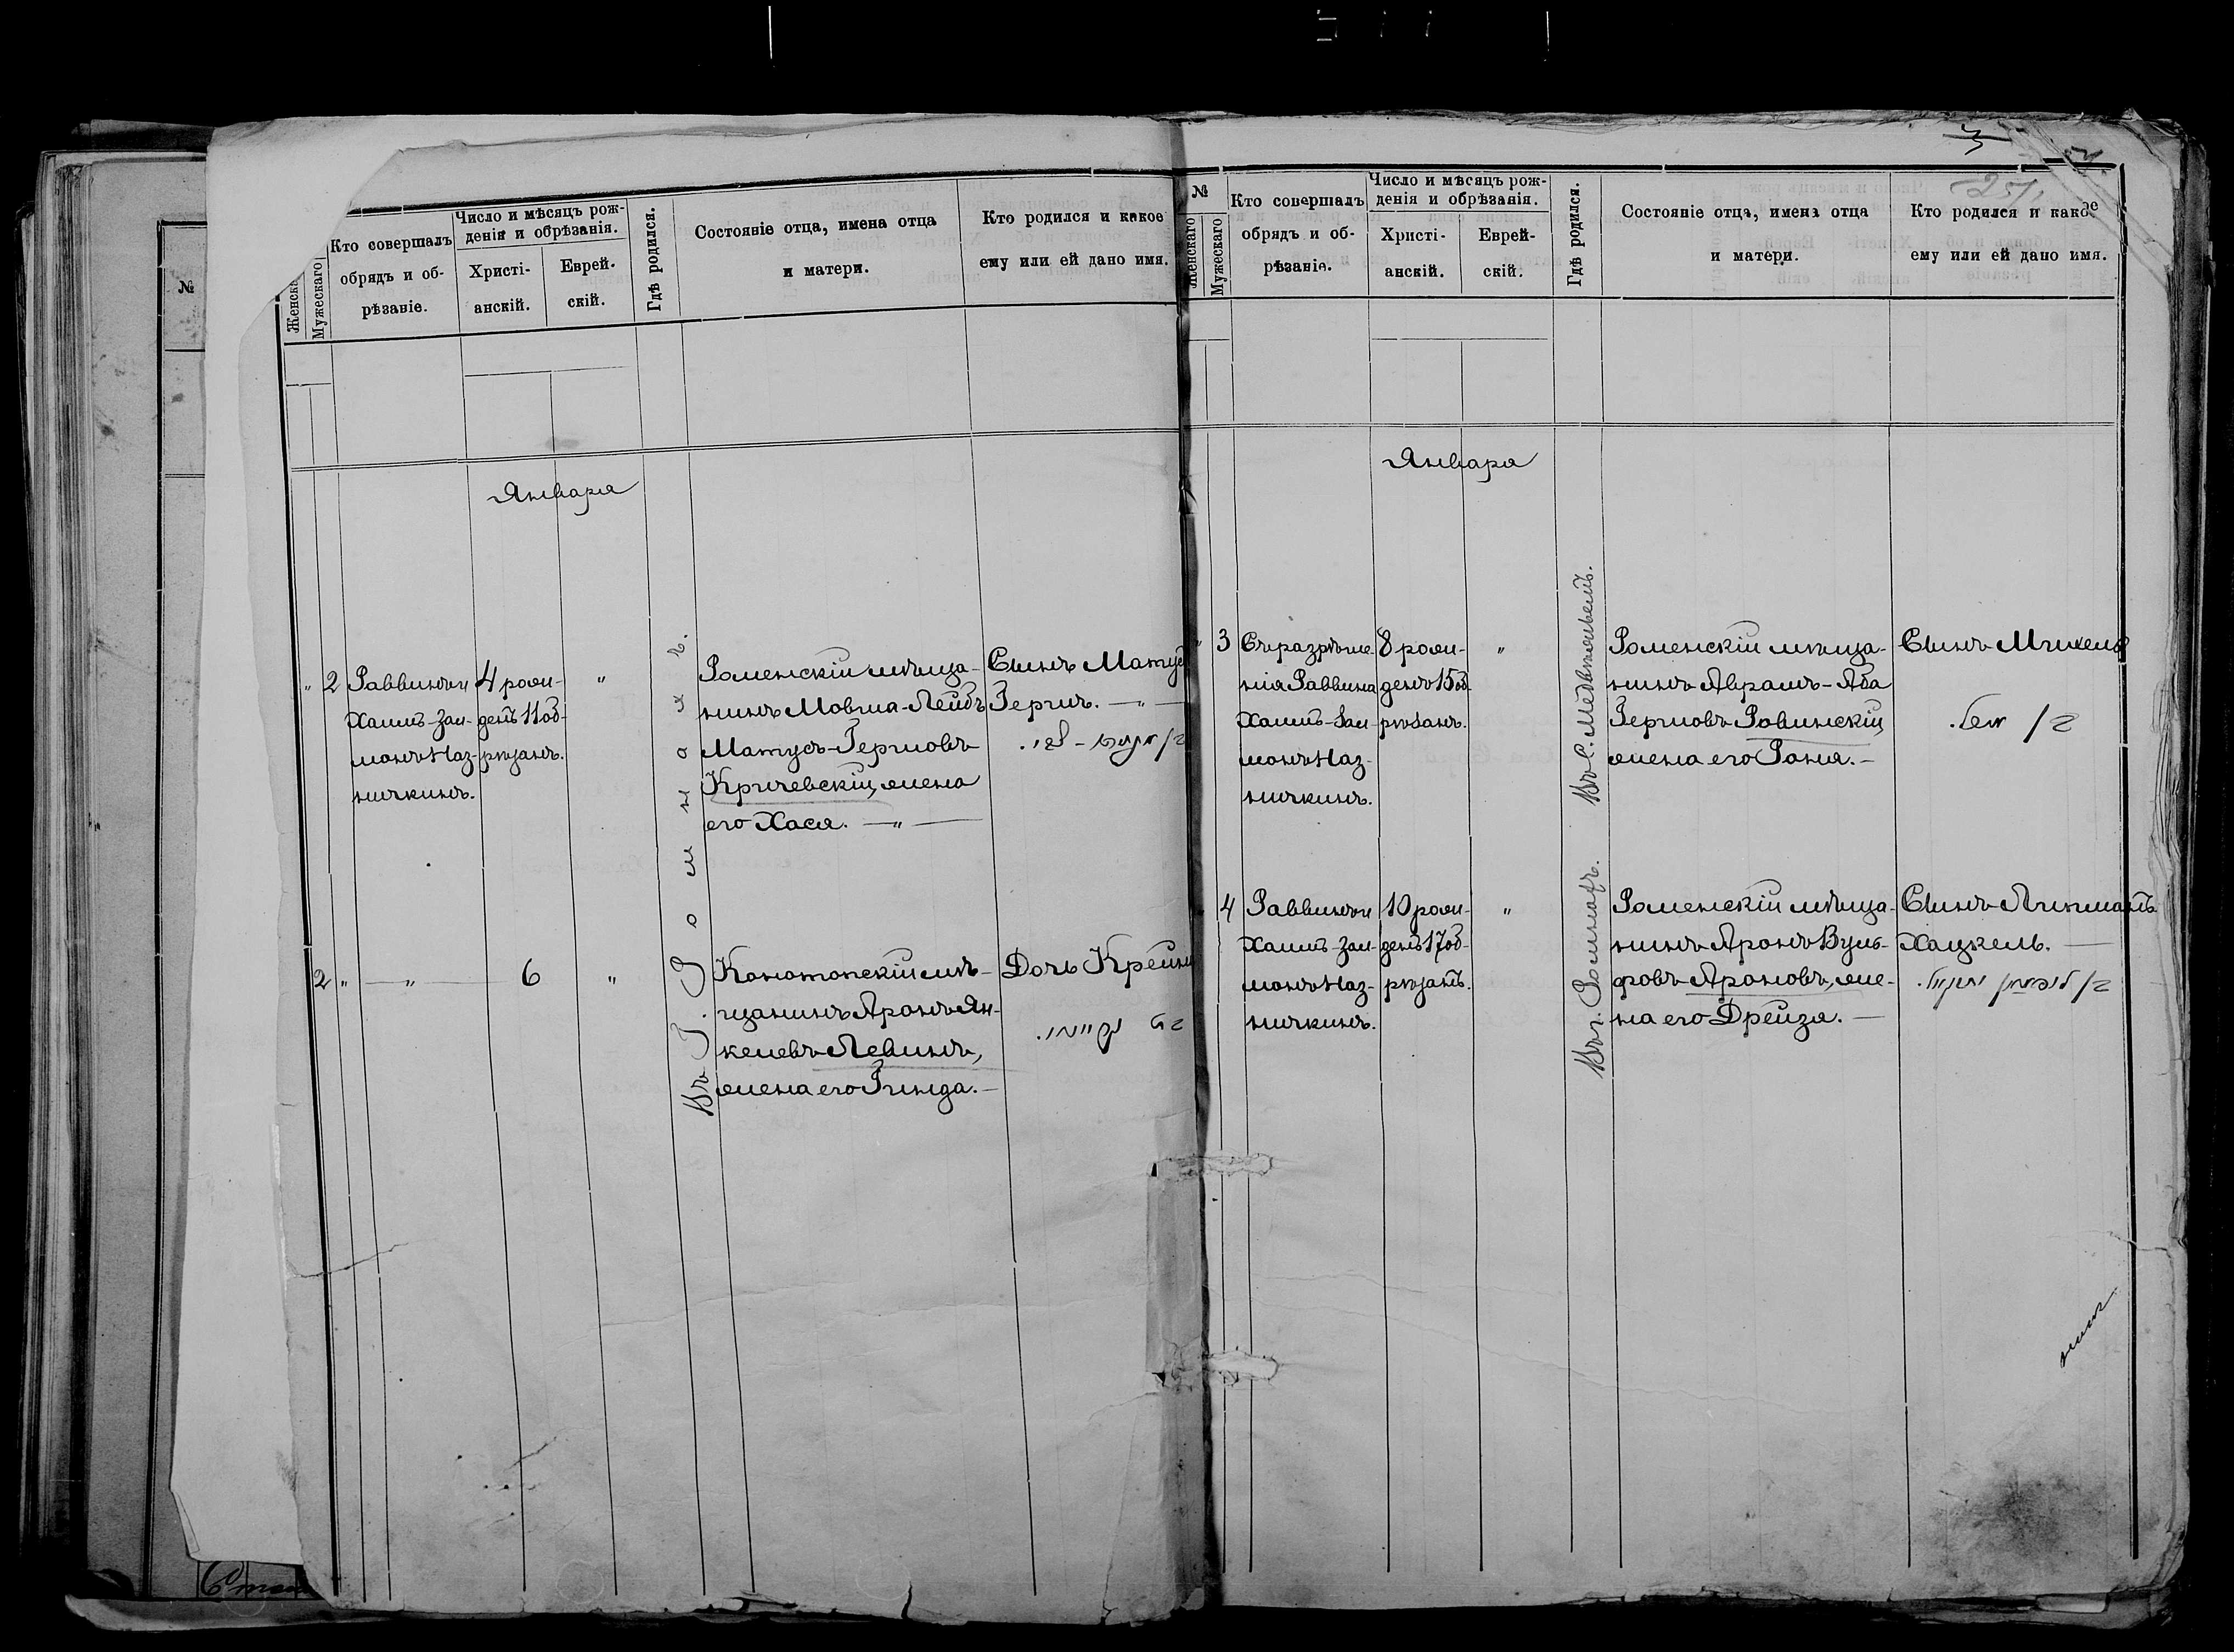 №
Женска
Мужескаго
Кто совершалъ
обрядъ и об-
рѣзаніе.
Число и мѣсяцъ рож-
денія и обрѣзанія.
Христі-
анскій.
Еврей-
скій.
Гдѣ родился.
Состояніе отца, имена отца
и матери.
Кто родился и какое
ему или ей дано имя.
Января
" 2
Раввинъ и
Хаимъ-Зал-
монъ Наз-
ничкинъ.
4 рож-
денъ 11 об-
рѣзанъ.
"
Въ г. Ромнахъ.
Роменскій мѣща-
нинъ Мовша-Лейбъ
Матусъ-Гершовъ
Кричевскій, жена
его Хася. — " —
Сынъ Матус
Гершъ. — " —
2 " — " —
6
"
Конотопскій мѣ-
щанинъ Аронъ Ян-
келевъ Левинъ,
жена его Гинда. —
Дочь Крейна
3
№
Женскаго
Мужескаго
Кто совершалъ
обрядъ и об-
рѣзаніе.
Число и мѣсяцъ рож-
денія и обрѣзанія.
Христі-
анскій.
Еврей-
скій.
Гдѣ родился.
Состояніе отца, имена отца
и матери.
Кто родился и какое
ему или ей дано имя.
Января
" 3
Съ разрѣше
нія Раввина
Хаимъ-Зал-
монъ Наз-
ничкинъ.
8 рож-
денъ 15 об-
рѣзанъ.
"
Въ с.
Роменскій мѣща-
нинъ Абрамъ-Аба
Гершовъ Ровинскій,
жена его Роня. —
Сынъ Михель
4
Раввинъ и
Хаимъ-Зал-
монъ Наз-
ничкинъ.
10 рож-
денъ 17 об-
рѣзанъ.
"
Въ г. Ромнахъ.
Роменскій мѣща-
нинъ Аронъ Вуль-
фовъ Ароновъ, же-
на его Дрейзя. —
Сынъ Липманъ
Хацкель. —